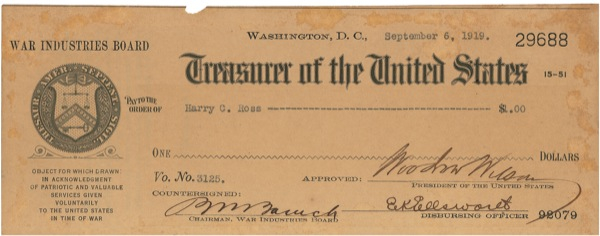 WASHINGTON, D. C., September 6, 1919. 29688
WAR INDUSTRIES BOARD
Treasurer of the United States 15-51
PAY TO THE ORDER OF Harry C. Ross $1.00
ONE DOLLARS
OBJECT FOR WHICH DRAWN:
IN ACKNOWLEDGMENT
OF PATRIOTIC AND VALUABLE
SERVICES GIVEN
VOLUNTARILY
TO THE UNITED STATES
IN TIME OF WAR
Vo. No. 3125. APPROVED: Woodrow Wilson
PRESIDENT OF THE UNITED STATES
COUNTERSIGNED:
B M Baruch E K Ellsworth
CHAIRMAN, WAR INDUSTRIES BOARD DISBURSING OFFICER 92079